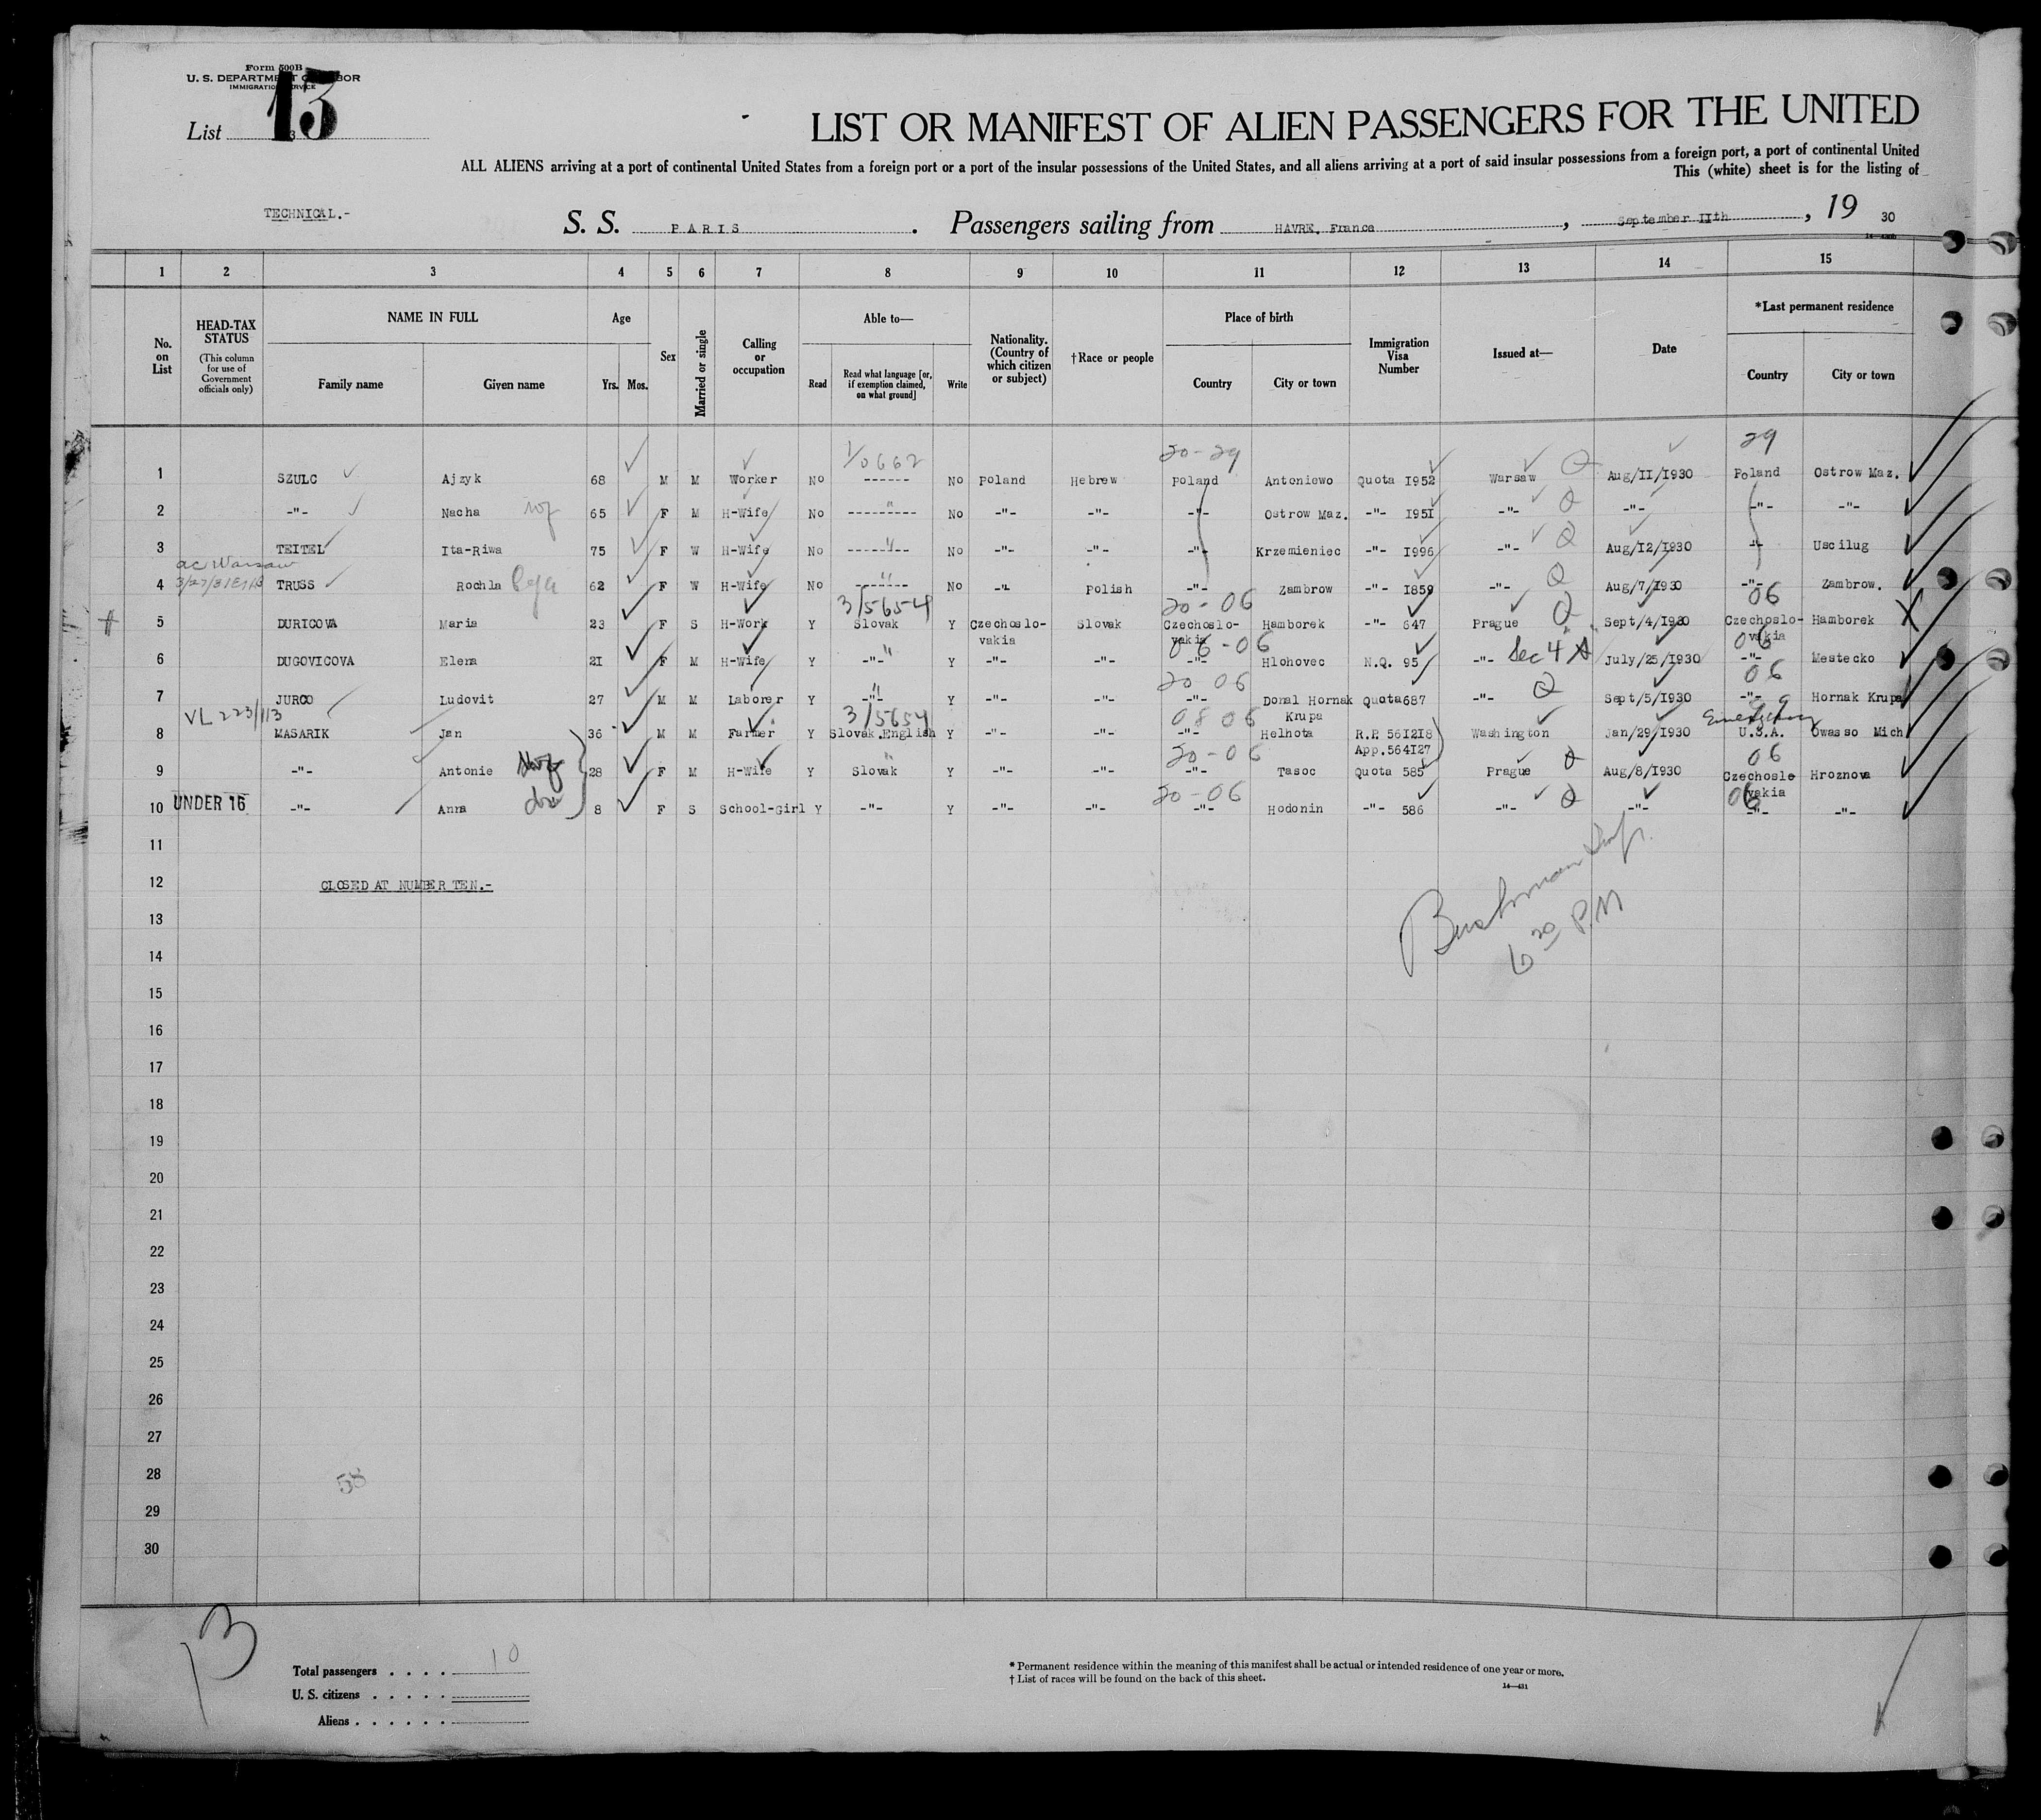 Form 500B
U. S. DEPARTMENT OF LABOR
IMMIGRATION SERVICE
List 13
LIST OR MANIFEST OF ALIEN PASSENGERS FOR THE UNITED
ALL ALIENS arriving at a port of continental United States from a foreign port or a port of the insular possessions of the United States, and all aliens arriving at a port of said insular possessions from a foreign port, a port of continental United
This (white) sheet is for the listing of
TECHNICAL.-
S. S. PARIS . Passengers sailing from HAVRE, France , September IIth , 19 30
1 2 3 4 5 6 7 8 9 10 11 12 13 14 15
No. on List
HEAD-TAX STATUS (This column for use of Government officials only)
NAME IN FULL
Family name Given name
Age
Yrs. Mos.
Sex
Married or single
Calling or occupation
Able to—
Read
Read what language [or, if exemption claimed, on what ground]
Write
Nationality. (Country of which citizen or subject)
†Race or people
Place of birth
Country City or town
Immigration Visa Number
Issued at—
Date
*Last permanent residence
Country City or town
1/0662 20-29 29
1 SZULC Ajzyk 68 M M Worker No ------ No Poland Hebrew Poland Antoniewo Quota I952 Warsaw Q Aug/II/I930 Poland Ostrow Maz.
2 -"- Nacha wf 65 F M H-Wife No --------- No -"- -"- -"- Ostrow Maz. -"- I95I -"- Q -"- -"- -"-
3 TEITEL Ita-Riwa 75 F W H-Wife No --------- No -"- -"- -"- Krzemieniec -"- I996 -"- Q Aug/I2/I930 -"- Uscilug
ac Warsaw
4 TRUSS Rochla 62 F W H-Wife No ------- No -"- Polish -"- Zambrow -"- I859 -"- Q Aug/7/I930 -"- Zambrow.
3/5654 20-06 06
5 DURICOVA Maria 23 F S H-Work Y Slovak Y Czechoslovakia Slovak Czechoslo-vakia Hamborek -"- 647 Prague Q Sept/4/I930 Czechoslo-vakia Hamborek X
06-06 06
6 DUGOVICOVA Elena 2I F M H-Wife Y -"- Y -"- -"- -"- Hlohovec N.Q. 95 -"- Sec 4 A July/25/I930 -"- Mestecko
20 06 06
7 JURCO Ludovit 27 M M Laborer Y -"- Y -"- -"- -"- Donal Hornak Krupa Quota 687 -"- Q Sept/5/I930 -"- Hornak Krupa
VL 223/113 3/5654 08 06
8 MASARIK Jan 36 M M Farmer Y Slovak.English Y -"- -"- -"- Helhota R.P. 56I2I8 App.564I27 Washington Jan/29/I930 U.S.A. Owasso Mich
20-06 06
9 -"- Antonie 28 F M H-Wife Y Slovak Y -"- -"- -"- Tasoc Quota 585 Prague Q Aug/8/I930 Czechoslo-vakia Hroznova
20-06 06
10 UNDER 16 -"- Anna 8 F S School-Girl Y -"- Y -"- -"- -"- Hodonin -"- 586 -"- Q -"- -"- -"-
11
12 CLOSED AT NUMBER TEN.-
13
14
6 30 P.M
15
16
17
18
19
20
21
22
23
24
25
26
27
28
58
29
30
13
Total passengers . . . . 10
U. S. citizens . . . . .
Aliens . . . . . .
* Permanent residence within the meaning of this manifest shall be actual or intended residence of one year or more.
† List of races will be found on the back of this sheet.
14—431